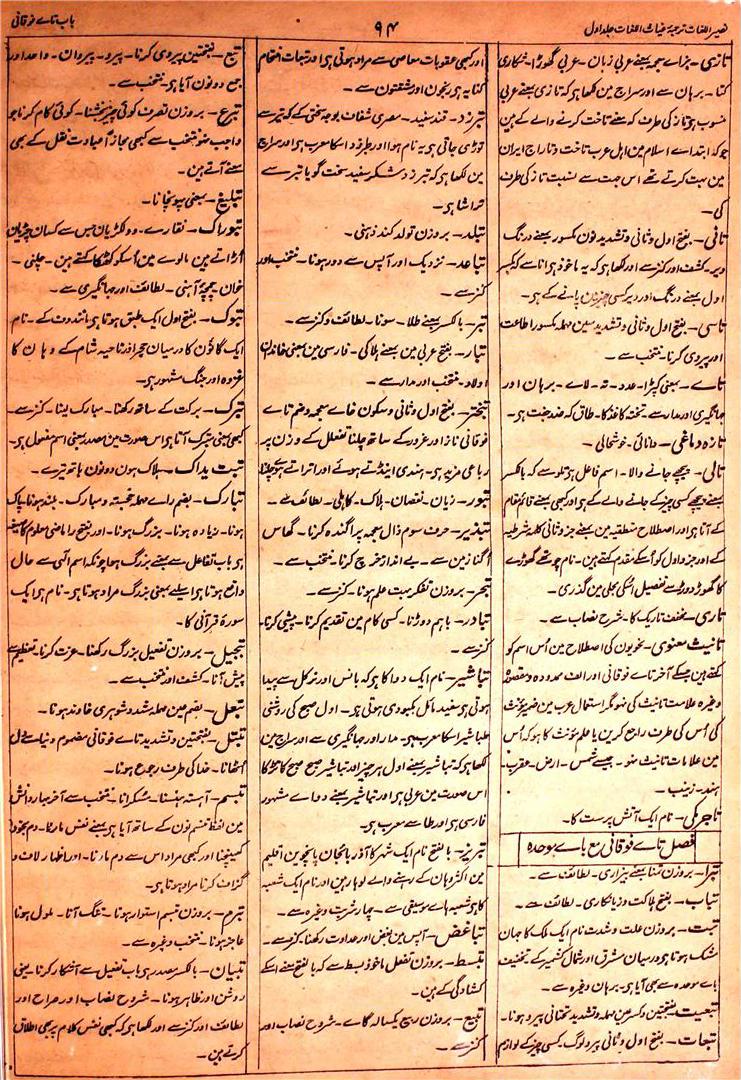 نصیر اللغات ترجمہ غیاث اللغات جلد اول
۹۴
باب تاے فوقانی
تازی۔ بزاے معجمہ بمعنے عربی زبان۔ عربی گھوڑا۔ شکاری
کتا۔ برہان سے اور سراج مین لکھا ہو کہ تازی بمعنے عربی
منسوب ہو تاز کی طرف کہ معنے تاخت کرنے والے کے ہین
چو کہ ابتداے اسلام مین اہل عرب تاخت و تاراج ایران
مین بہت کرتے تھے اس جہت سے نسبت تاز کی طرف
کی۔
تانی۔ بفتح اول و ثانی و تشدید نون مکسور بمعنے درنگ
ودیر۔ کشف اور کنز سے اور لکھا ہو کہ یہ ماخوذ ہو انا سے کہ بکسر
اول بمعنے درنگ اور دیر کسی چیز مین پانے کے ہی۔
تاسی۔ بفتح اول و ثانی و تشدید سین مہملہ مکسور اطاعت
اور پیروی کرنا۔ منتخب سے۔
تاے۔ بمعنی کپڑا۔ عدد۔ تہ۔ لاے۔ برہان اور
جہانگیری اور مدار سے۔ تختہ کاغذ کا۔ طاق کہ ضد جفت ہی۔
تازہ دماغی۔ دانائی۔ خوشحالی۔
تالی۔ پیچھے جانے والا۔ اسم فاعل ہو تلو سے کہ بالکسر
بمعنے پیچھے کسی چیز کے جانے والے کے ہی اور کبھی بمعنے قائم مقام
کے آتا ہی اور اصطلاح منطقیہ مین بمعنے جزو ثانی کلمہ شرطیہ
کے اور جزو اول کو اُسکے مقدم کہتے ہین۔ نام چوتھے گھوڑے
کا گھوڑ دوڑ سے تفصیل اُسکی مجلی مین گذری۔
تاری۔ مخفف تاریک کا۔ شرح نصاب سے۔
تانیث معنوی۔ نحویون کی اصطلاح مین اُس اسم کو
کہتے ہین جسکے آخر تاے فوقانی اور الف ممدودہ و مقصورہ
وغیرہ علامت تانیث کی نہو مگر استعمال عرب مین ضمیر مونث
کی اُس کی طرف راجع کرین یا علم مونث کا ہو کہ اُس
مین علامات تانیث نہو۔ جیسے شمس۔ ارض۔ عقرب۔
ہند۔ زینب۔
تاجرمکی۔ نام ایک آتش پرست کا۔
فصل تاے فوقانی مع باے موحدہ
تبرا۔ بروزن تمنا بمعنے بیزاری۔ لطائف سے۔
تباب۔ بفتح ہلاکت و زیانکاری۔ لطائف سے۔
تبت۔ بروزن علت و شدت نام ایک ملک کا جہان
مشک ہوتا ہی درمیان مشرق اور شمال کشمیر کے تخفیف
باے موحدہ سے بھی آیا ہی۔ برہان وغیرہ سے۔
تبعیت۔ بفتحتین و کسر عین مہملہ و تشدید تحتانی پیرو ہونا۔
تبعات۔ بفتح اول و ثانی پیرو لوگ۔ کسی چیز کے لوازم
اور کبھی عقوبات معاصی سے مراد ہوتی ہی اور تبعات انتقام
کنایہ ہی رنجون اور شفقتون سے۔
تبرزد۔ قند سفید۔ مصری شفاف بوجہ سختی کے کہ تبر سے
توڑی جاتی ہی یہ نام ہوا اور طبرزد اسکا معرب ہی اور سراج
مین لکھا ہو کہ تبرزد شکر سفید سخت گویا تبر سے
تراشا ہی۔
تبلد۔ بروزن تولد کند ذہنی۔
تباعد۔ نزدیک اور آپس سے دور ہونا۔ منتخب اور
کنز سے۔
تبر۔ بالکسر بمعنے طلا۔ سونا۔ لطائف و کنز سے۔
تبار۔ بفتح عربی مین بمعنے ہلاکی۔ فارسی مین بمعنی خاندان
اولاد۔ منتخب اور مدار سے۔
تبختر۔ بفتح اول و ثانی و سکون خاے معجمہ و ضم تاے
فوقانی ناز اور غرور کے ساتھ چلنا تفعلل کے وزن پر
رباعی مزید ہی۔ ہندی اینڈتے ہوئے اور اتراتے ہوئے چلنا
تبور۔ زیان۔ نقصان۔ ہلاک۔ کاہلی۔ لطائف سے۔
تبذیر۔ حرف سوم ذال معجمہ پراگندہ کرنا۔ گھاس
اُگنا زمین سے۔ بے انداز خرچ کرنا۔ منتخب سے۔
تبحر۔ بروزن تفکر بہت علم ہونا۔ کنز سے۔
تبادر۔ باہم دوڑنا۔ کسی کام مین تقدیم کرنا۔ پیشی کرنا۔
کنز سے۔
تباشیر۔ نام ایک دوا کا ہو کہ بانس اور نرکل سے پیدا
ہوتی ہی سفید مائل بکبودی ہوتی ہی۔ اول صبح کی روشنی
طباشیر اسکا معرب ہی۔ مدار اور جہانگیری سے اور سراج مین
لکھا ہو کہ تباشیر بمعنے اول ہر چیز اور تباشیر صبح صبح کا تڑکا
اس صورت مین عربی ہی اور تباشیر بمعنے دواے مشہور
فارسی ہی اور طا سے معرب ہی۔
تبریز۔ بالفتح نام ایک شہر کا آذربائیجان پانچوین اقلیم
مین اکثر وہان کے رہنے والے لوہار ہین اور نام ایک شعبہ
کا ہو شعبہاے موسیقی سے۔ چہار شربت وغیرہ سے۔
تباغض۔ آپس مین بغض اور عداوت رکھنا۔ کنز سے۔
تبسط۔ بروزن تفعل ماخوذ بسط سے کہ بالفتح بمعنے اسکے
کشادگی کے ہین۔
تبیع۔ بروزن ربیع یکسالہ گاے۔ شروح نصاب اور
کنز سے۔
تبع۔ بفتحتین پیروی کرنا۔ پیرو۔ پیروان۔ واحد اور
جمع دونون آیا ہی۔ منتخب سے۔
تبرع۔ بروزن تصرف کوئی چیز بخشنا۔ کوئی کام کرنا جو
واجب نہو منتخب سے کبھی مجازاً عبادت نفل کے بھی
معنے آتے ہین۔
تبلیغ۔ بمعنی پہونچانا۔
تبوراک۔ نقارے۔ وہ لکڑیان جس سے کسان چڑیان
اُڑاتے ہین مالوے مین اُسکو کھڑکا کہتے ہین۔ چلنی۔
خوان۔ چمچہ آہنی۔ لطائف اور جہانگیری سے۔
تبوک۔ بفتح اول ایک طبق ہوتا ہی مانند دف کے۔ نام
ایک گاؤن کا درمیان حجر اور ناحیہ شام کے وہان کا
غزوہ اور جنگ مشہور ہی۔
تبرک۔ برکت کے ساتھ رکھنا۔ مبارک لینا۔ کنز سے۔
کبھی بمعنی متبرک آتا ہی اس صورت مین مصدر بمعنی اسم مفعول ہی۔
تبت یداک۔ ہلاک ہون دونون ہاتھ تیرے۔
تبارک۔ بضم راے مہملہ خجستہ و مبارک۔ بلند ہونا پاک
ہونا۔ زیادہ ہونا۔ بزرگ ہونا۔ اور بفتح را ماضی معلوم کا صیغہ
ہی باب تفاعل سے بمعنے بزرگ ہوا چونکہ اسم الٰہی سے حال
واقع ہوتا ہی اسلیے بمعنی بزرگ مراد ہوتا ہی۔ نام ہی ایک
سورۂ قرآنی کا۔
تبجیل۔ بروزن تفعیل بزرگ رکھنا۔ عزت کرنا۔ تعظیم سے
پیش آنا۔ کشف اور منتخب سے۔
تبعل۔ بضم عین مہملہ مشدد شوہری خاوند ہونا۔
تبتل۔ بفتحتین و تشدید تاے فوقانی مضموم دنیا سے دل
اُٹھانا۔ خدا کی طرف رجوع ہونا۔
تبسم۔ آہستہ ہنسنا۔ مُسکرانا۔ منتخب سے
مین لفظ تنسم نون کے ساتھ آیا ہی بمعنے نفس مارنا۔ دم بخود
کھینچنا اور کبھی مراد اس سے دم مارنا۔ اور اظہار لاف و
گزاف کرنا مراد ہوتا ہی۔
تبرم۔ بروزن تبسم استوار ہونا۔ تنگ آنا۔ ملول ہونا
عاجز ہونا۔ منتخب وغیرہ سے۔
تبیان۔ بالکسر مصدر ہی باب تفعیل سے آشکار کرنا۔ یعنی
روشن اور ظاہر ہونا۔ شروح نصاب اور صراح اور
لطائف اور کنز سے اور لکھا ہو کہ کبھی نفس کلام پر بھی اطلاق
کرتے ہین۔